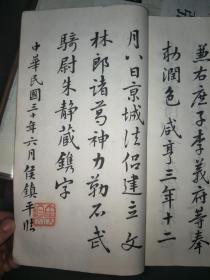 兼右庶子李義府等奉
勅潤色 咸亨三年十二
月八日京城法侶建立文
林郎諸葛神力勒石武
騎尉朱静藏鐫字
中華民國三十年六月侯鎮平臨